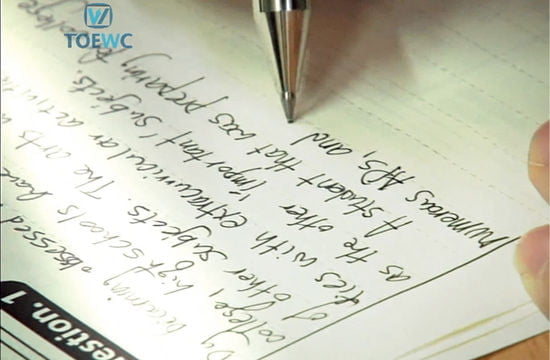 TOEWC
estion. 1
By becoming obsessed
college, high schools have
of other subjects. The arts
ties with extracurricular activiti
as the other important subjects.
A student that was preparing for college
numerous APs, and